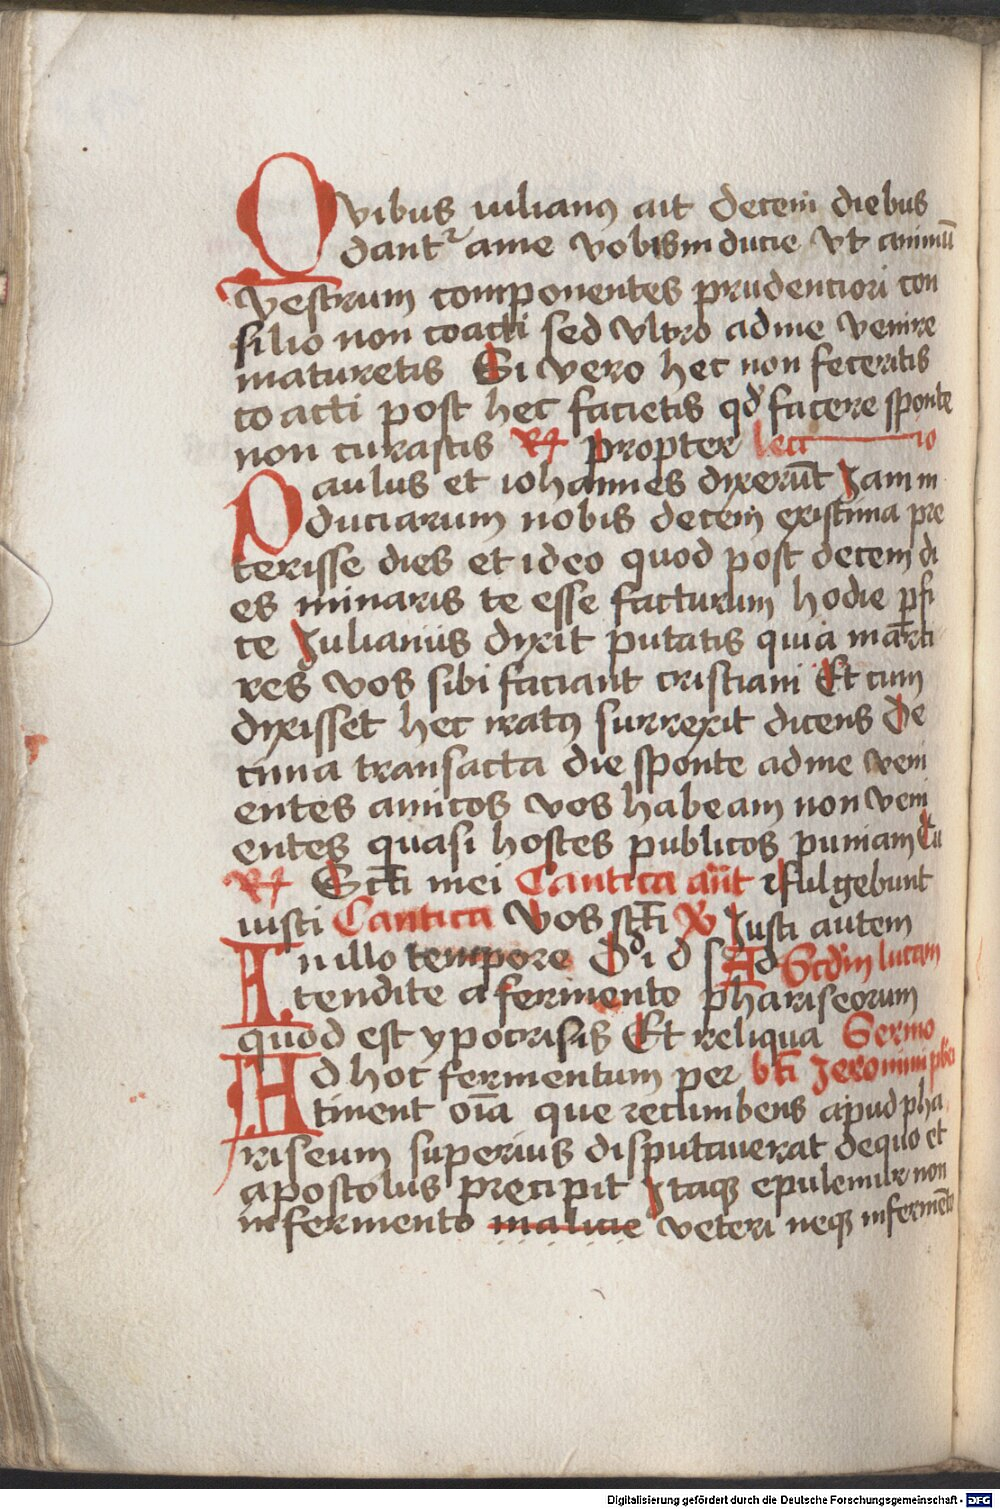 Quibus iulianꝰ ait decem diebus
dantᷣ a me vobis in ducie vt animū
vestrum componentes prudenciori con
silio non coacti sed vltro ad me venire
maturetis Si vero hec non feceritis
coacti post hec facietis qd̕ facere sponte
non curastis R̸ propter lectio
Paulus et iohannes dixerūt Jam in
duciarum nobis decem existima pre
terisse dies et ideo quod post decem di
es minaris te esse facturum hodie ꝑfi
ce Julianus dyxit putatis quia marti
res vos sibi faciant cristiani Et cum
dyxisset hec iratꝰ surrexit dicens De
cima transacta die sponte ad me veni
entes amicos vos habeam non veni
entes quasi hostes publicos puniam Tu
R̸ Sct̄i mei Cantica an̄t Fulgebunt
iusti Cantica Vos sct̄i V̸ Justi autem
In illo tempore D i d s Ad Scd̄m lucam
tendite a fermento phariseorum
quod est ypocrisis Et reliqua Sermo
Ad hoc fermentum per bt̄i Jeronimi pb̄ri
tinent oīa que recumbens apud pha
riseum superius disputauerat de quo et
apostolus precipit Itaqꝫ epulemur non
in fermento malicie veteri neqꝫ in fermēto
Digitalisierung gefördert durch die Deutsche Forschungsgemeinschaft - DFG